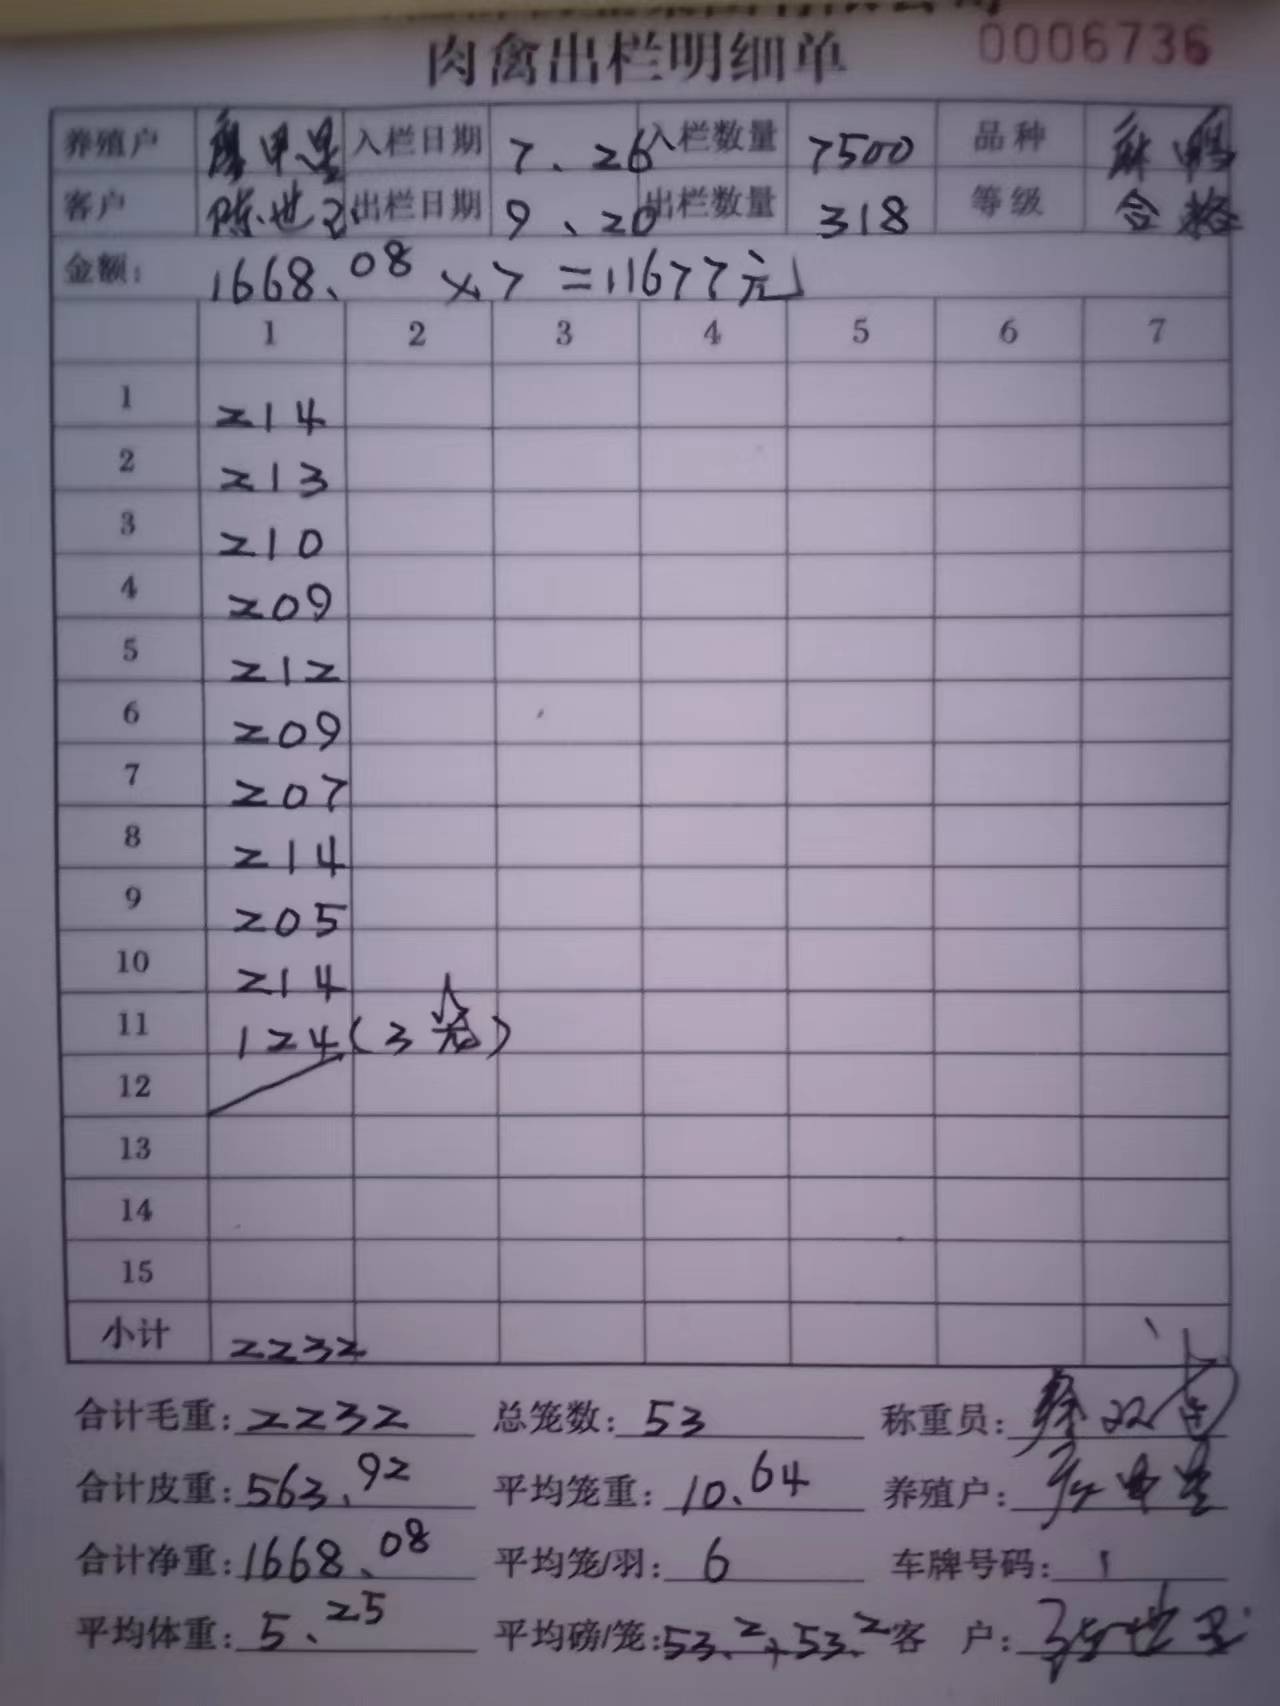 肉禽出栏明细单 0006736
养殖户 入栏日期 7、26 入栏数量 7500 品种 麻鸭
客户 陈世 出栏日期 9、20 出栏数量 318 等级 合格
金额: 1668.08 x7 =11677元
1 2 3 4 5 6 7
1 214
2 213
3 210
4 209
5 212
6 209
7 207
8 214
9 205
10 214
11 124(3笼)
12
13
14
15
小计 2232
合计毛重: 2232 总笼数: 53 称重员:
合计皮重: 563.92 平均笼重: 10.64 养殖户:
合计净重: 1668.08 平均笼/羽: 6 车牌号码:
平均体重: 5.25 平均磅/笼: 53.2+53.2 客 户: